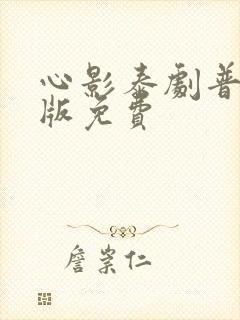 心影泰劇普
版免費
詹崇仁